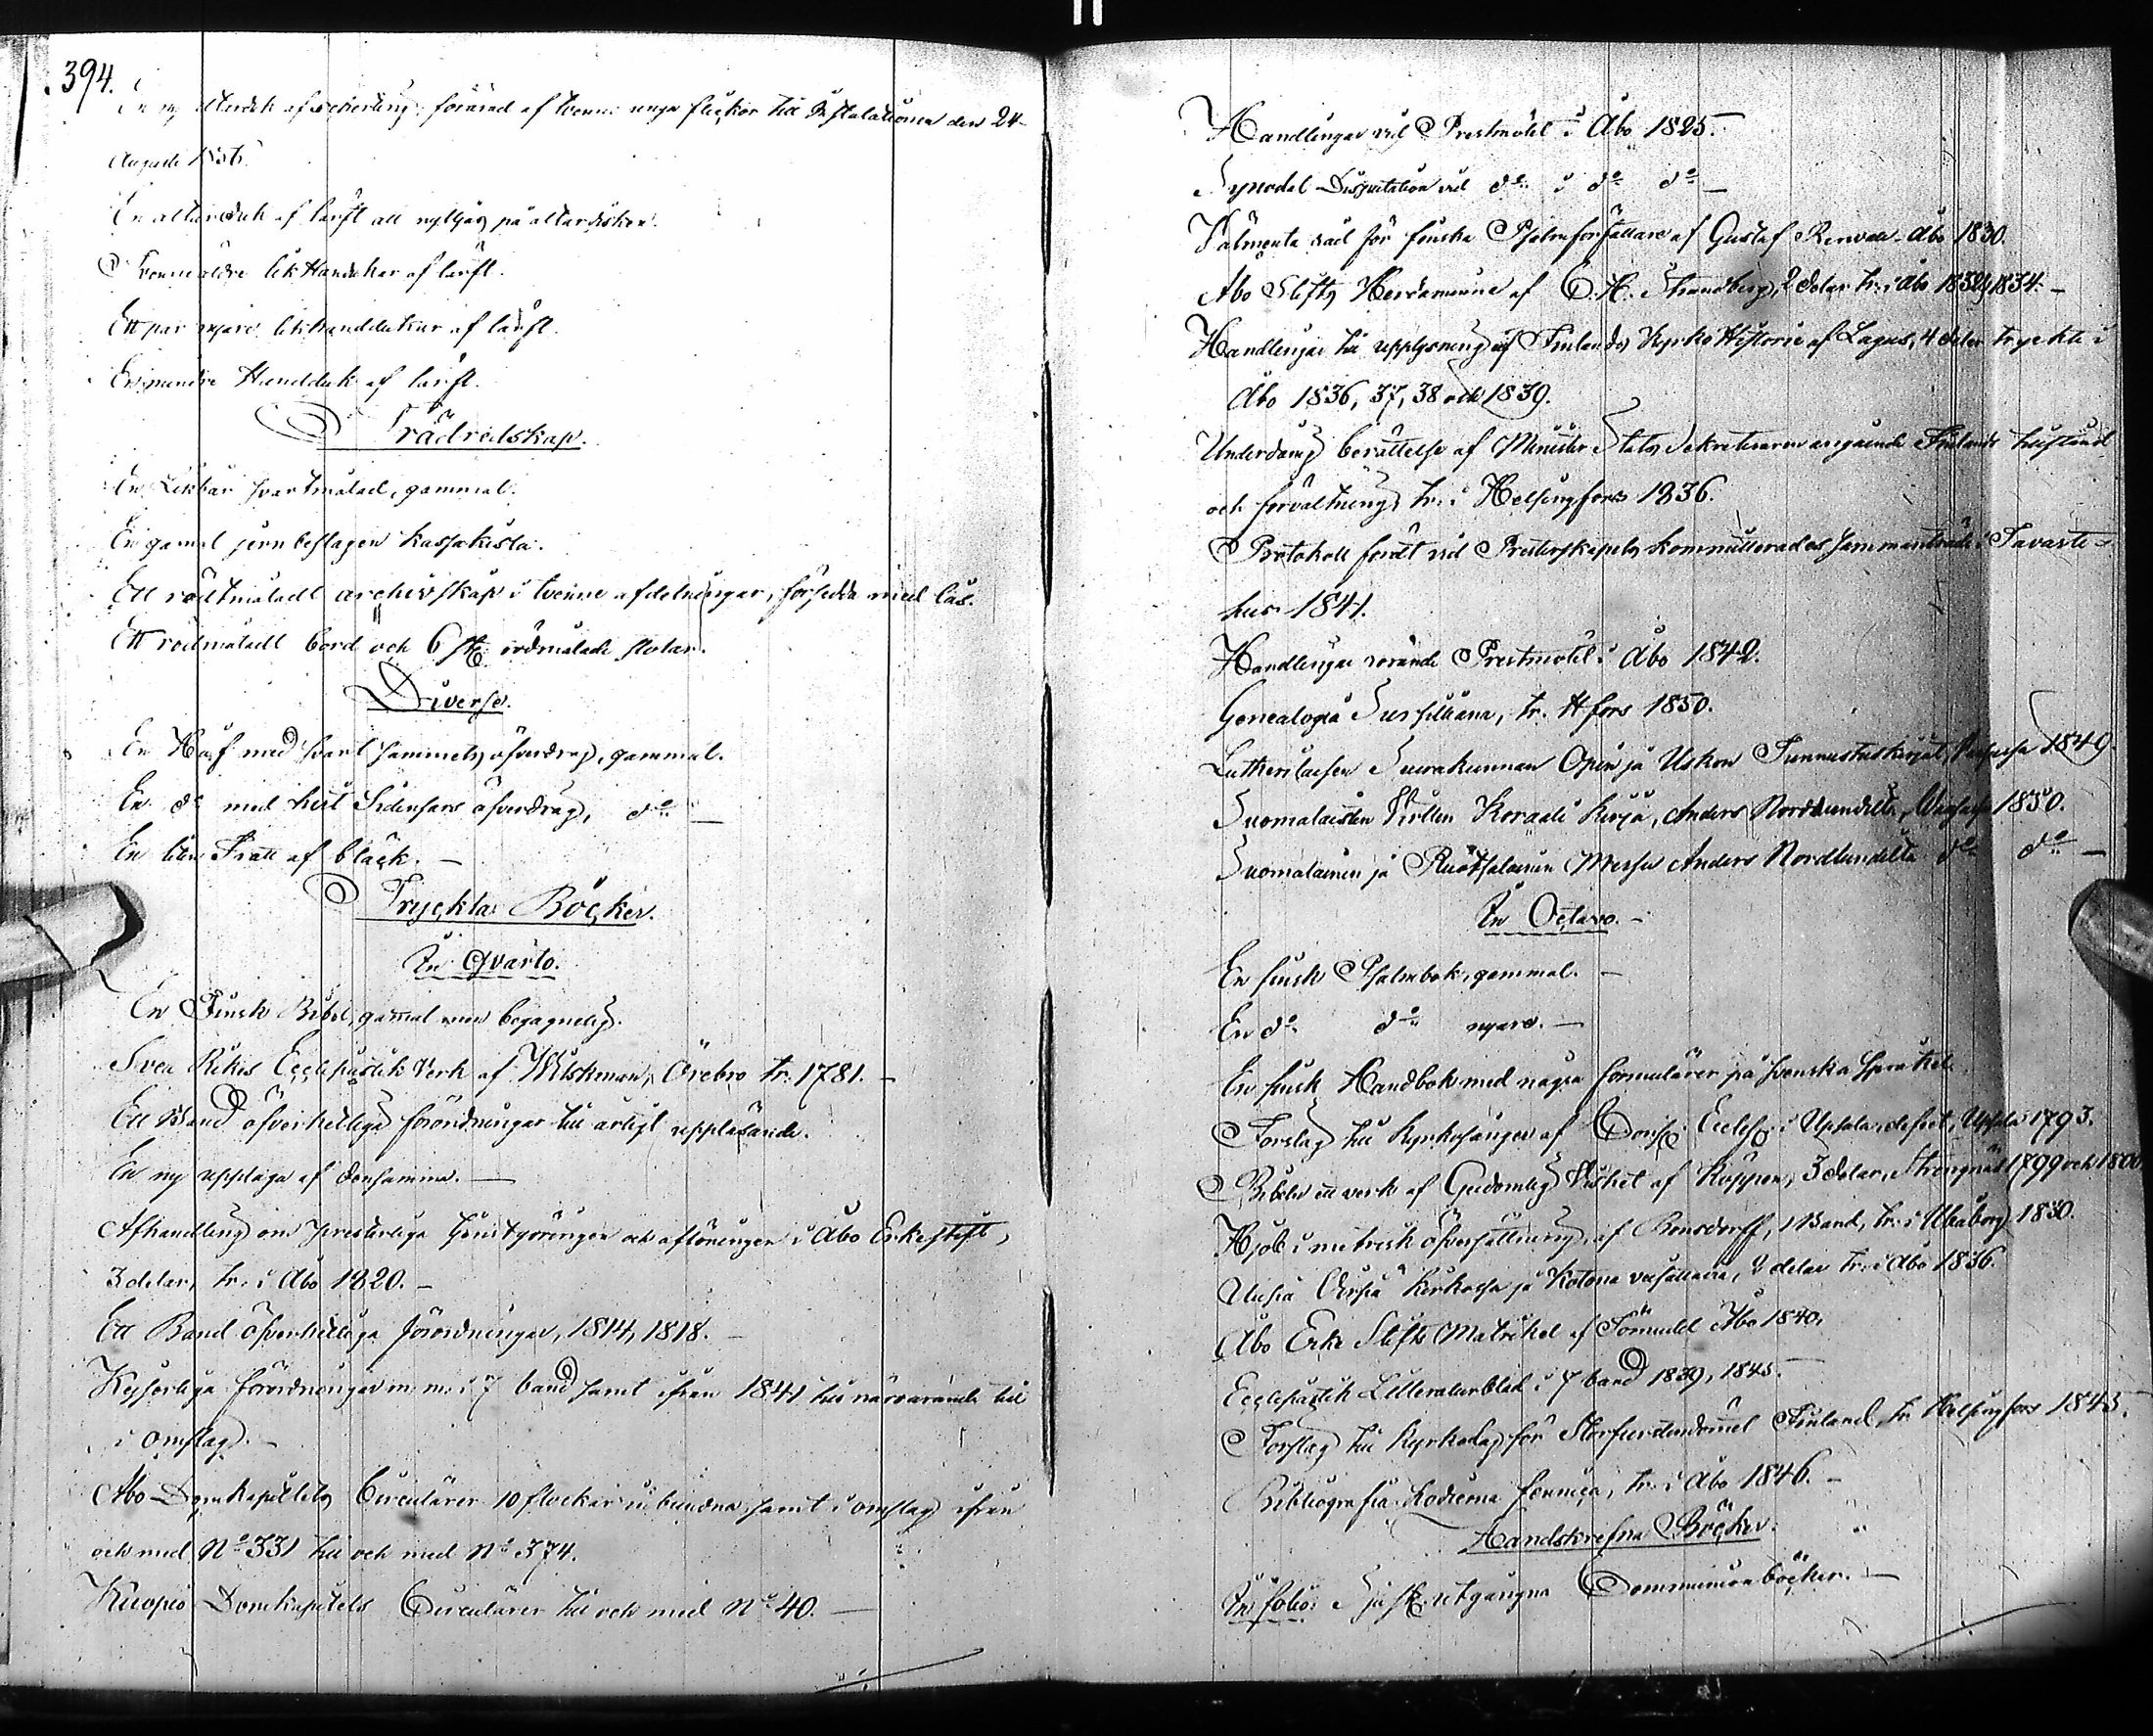 394.
En ny altarduk af förärad af tvenne unga flickor till Installationen den 24
Augusti
En altarduk af lärft att nyttjas på altardisken.
Tvenne äldre likhanddukar af lärft.
Ett par nyare likhanddukar af lärft.
En mindre Handduk af lärft.
Trädredskap.
En Likbår svartmålad, gammal.
En gamal jernbeslagen kassakista.
Ett rödtmåladt archivskåp i tvenne afdelningar, försedda med lås.
Ett rödmåladt bord och 6 st: rödmålade stolar.
Diverse.
En Håf med svart sammets öfverdrag, gammal.
En do med hvit Sidensars öfverdrag, do —
En liten Tratt af bläck. —
Tryckta Böcker.
In Qvarto.
En Finsk Bibel, gamal men begagnelig.
Svea Rikes Ecclesiastik Verk af Wilskman, Örebro tr. 1781. —
Ett Band öfverhetliga förordningar till årligt uppläsande.
En ny upplaga af densamma. —
Afhandling om presterliga tjenstgöringen och aflöningen i Åbo Erkestift,
3 delar, tr. i Åbo 1820. —
Ett Band öfverhetliga förordningar, 1814, 1818. —
Kejserliga förordningar m. m. i 7 band samt ifrån 1841 till närvarande tid
i omslag. —
Åbo Domkapitlets Circulärer 10 stockar inbundna samt i omslag ifrån
och med No 331 till och med No 374.
Kuopio Domkapitels Circulärer till och med No 40. —
Handlingar vid Prestmötet i Åbo 1825. —
Synodal Disputation vid do i do do —
Välmenta råd för finska Psalmförfattare af Gustaf Renvall. Åbo 1830.
Åbo Stifts Herdaminne af C. H. Strandberg, 2 delar tr. i Åbo 1832, 1834. —
Handlingar till upplysning af Finlands Kyrko Historie af Lagus, 4 delar tryckte i
Åbo 1836, 37, 38 och 1839.
Underdånig berättelse af Minister Stats Sekreteraren angående Finlands tillstånd
och förvaltning, tr. i Helsingfors 1836.
Protokoll fördt vid Presterskapets kommitterades sammanträde i Tavaste-
hus 1841.
Handlingar rörande Prestmötet i Åbo 1842.
Genealogia Sursilliana, tr. H fors 1850.
Lutherilaisen Seurakunnan Opin ja Uskon Tunnustuskirjat, 1849.
Suomalaisten Koraali kirja, Anders Nordlundilta, 1850.
Suomalainen ja Ruotsalainen Messu Anders Nordlundilta do do —
In Octavo. —
En finsk Psalmbok, gammal. —
En do do nyare. —
En finsk Handbok med några formulärer på svenska språket.
Förslag till Kyrkosånger af Cons: Eccles: i Upsala, defect, Upsala 1793.
Bibeln ett verk af Gudomlig Vishet af Köppen, 3 delar, Strengnäs 1799 och 1800
Hjob i metrisk öfversättning, af Bonsdorff, 1 Band, tr. i Uleåborg 1830.
Uusia Virsiä Kirkossa ja Kotona veisattavia, 2 delar tr. i Åbo 1836.
Åbo Erke Stifts Matrikel af Törnudd Åbo 1840.
Ecclesiastik Litteraturblad i 7 band 1839, 1845. —
Förslag till Kyrkolag för Storfurstendömet Finland, tr. Helsingfors 1845.
Bibliografia hodierna fennica, tr. i Åbo 1846. —
Handskrefna Böcker.
In folio: Sju st. utgångna Communionböcker. —